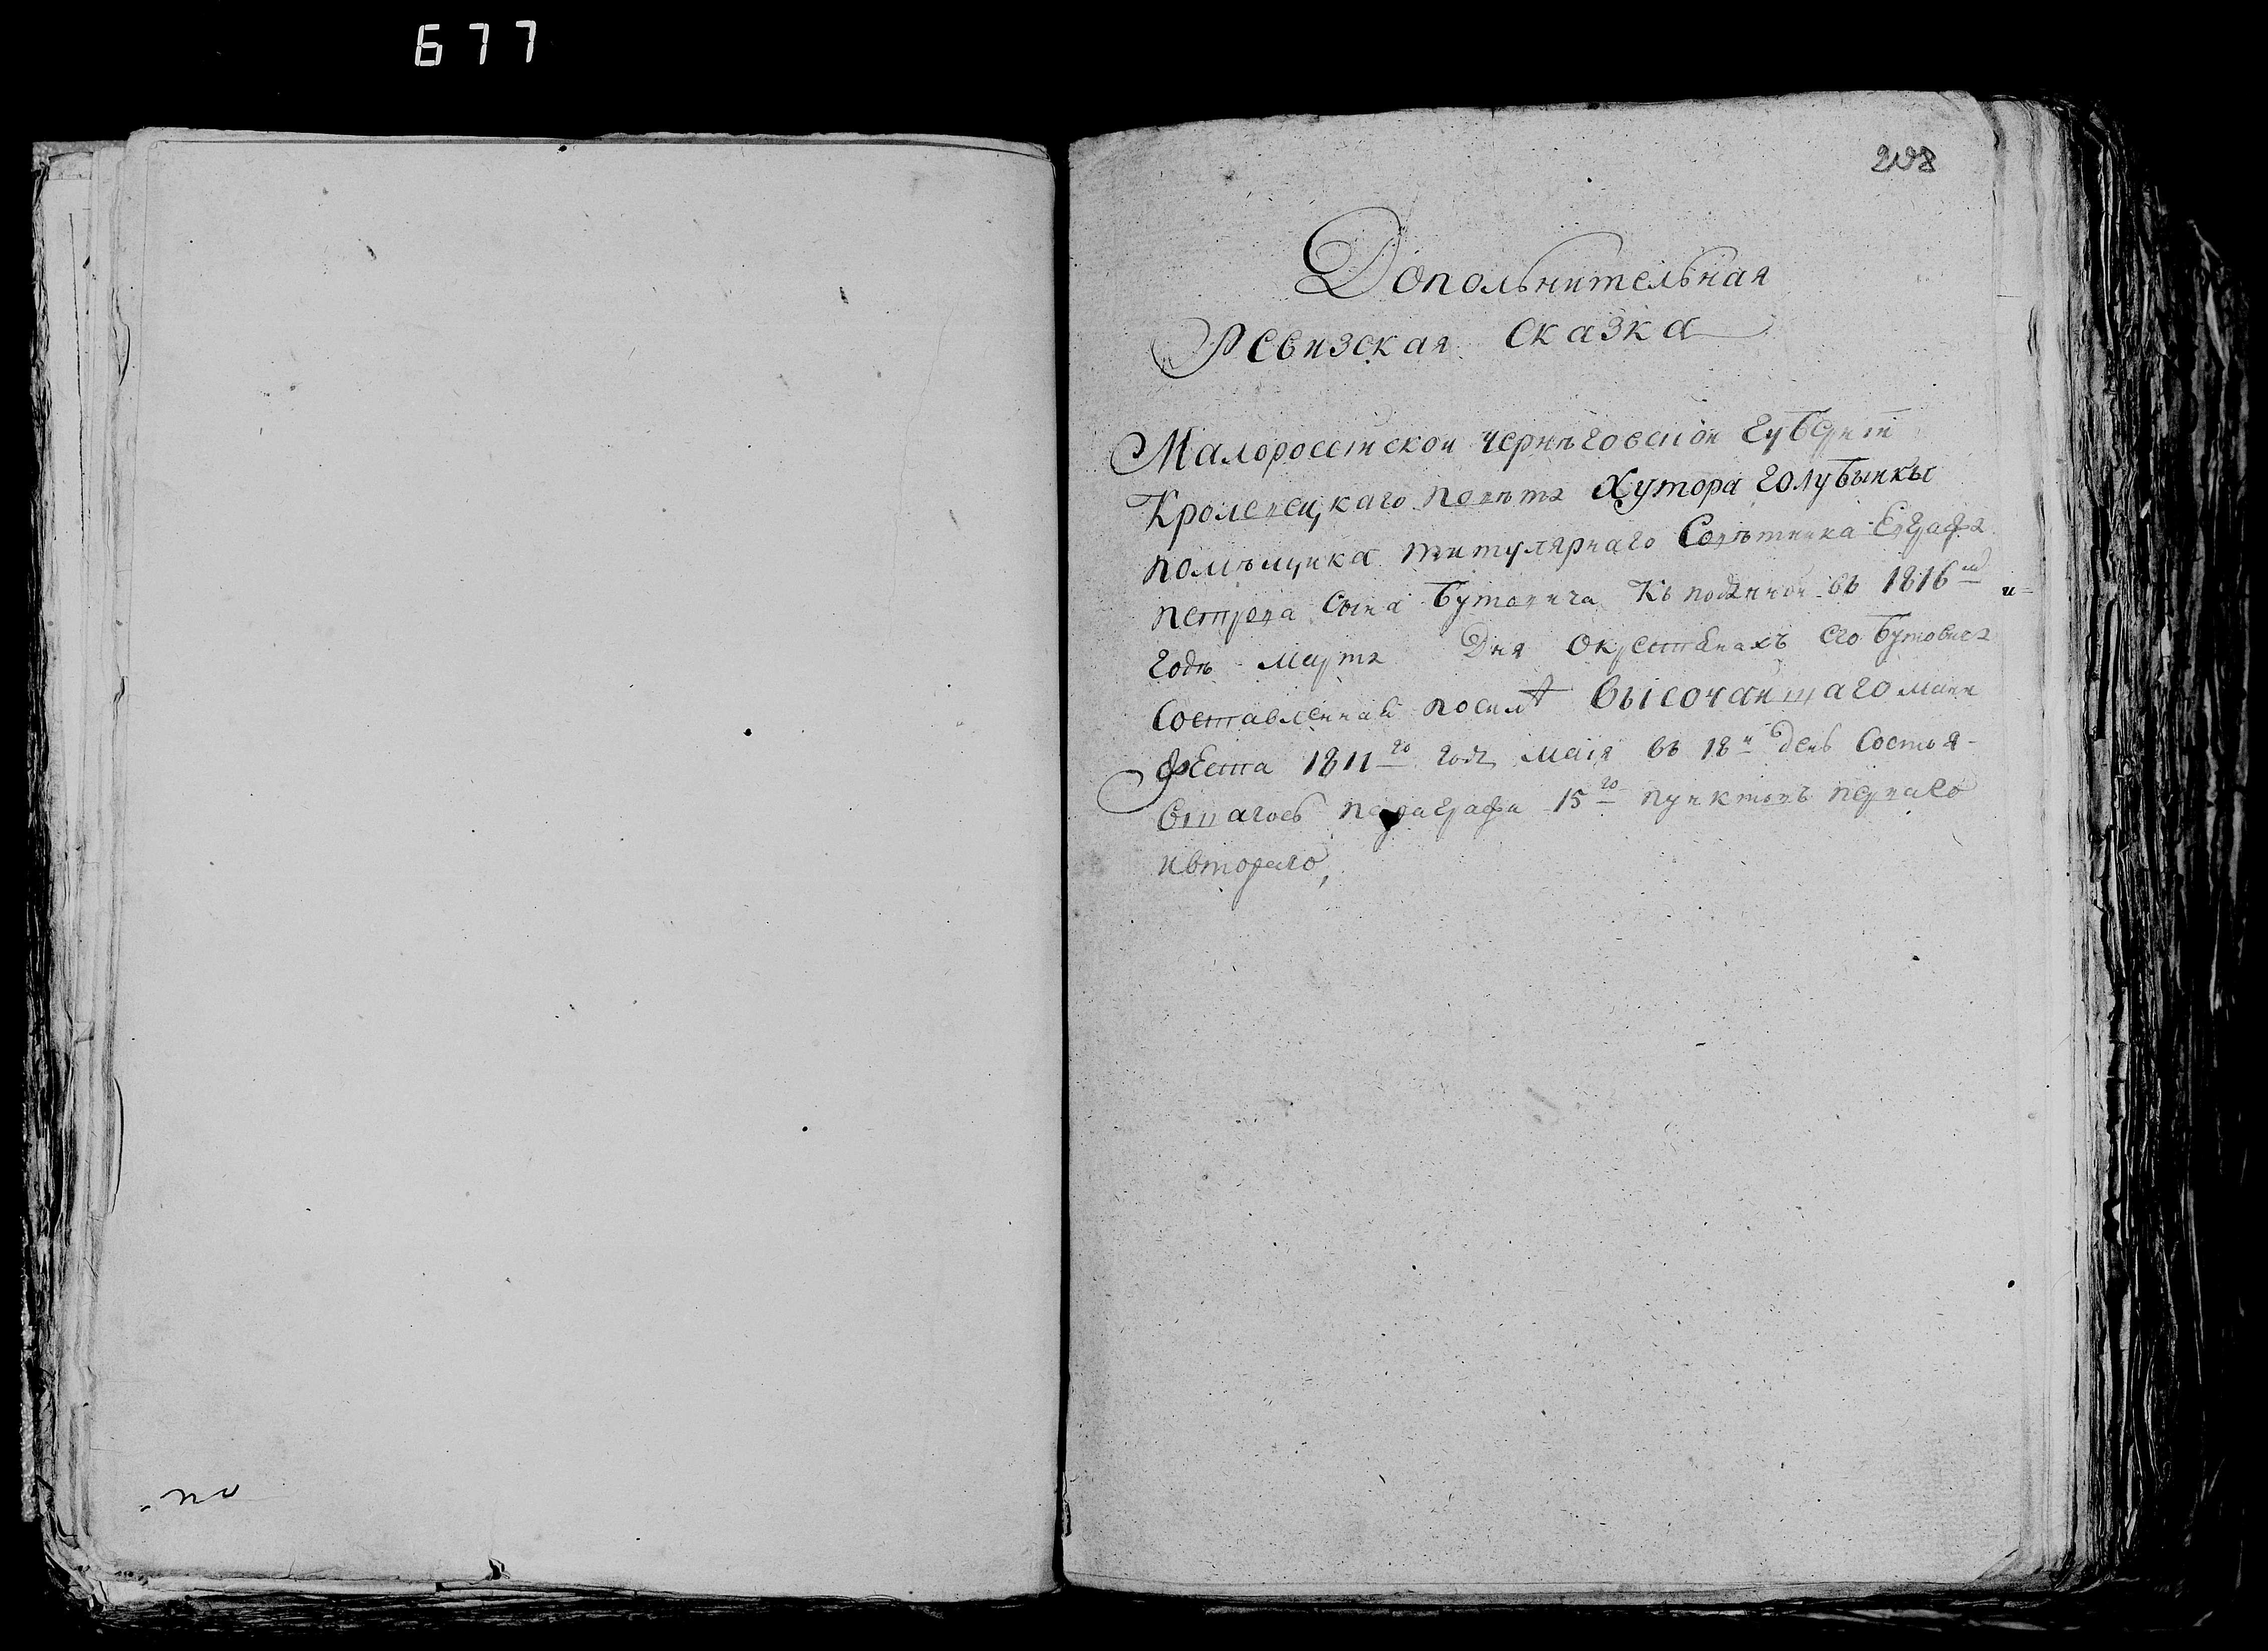 677
208
Допольнительная
Ревизская сказка
Малоросеийской чернѣговской губернии
Кролевецкаго повѣта Хутора голубынкы
помѣщика титулярнаго Совѣтника Евграфа
петрова сына Бутовича Къ поданной въ 1816м
годѣ марта Дня окрестянахъ его Бутовича
Составленная посилѣ Высочайшаго мани
феста 1811го года маия въ 18й день Состоя
вшагось параграфа 15го пунктовъ перваго
ивтораго,